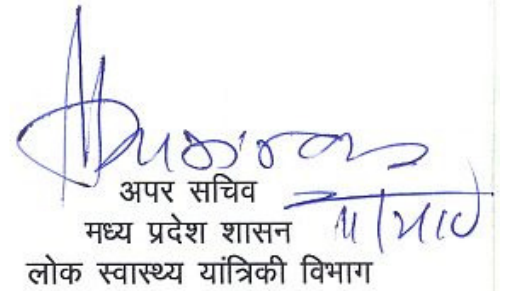 अपर सचिव
मध्य प्रदेश शासन
लोक स्वास्थ्य यांत्रिकी विभाग